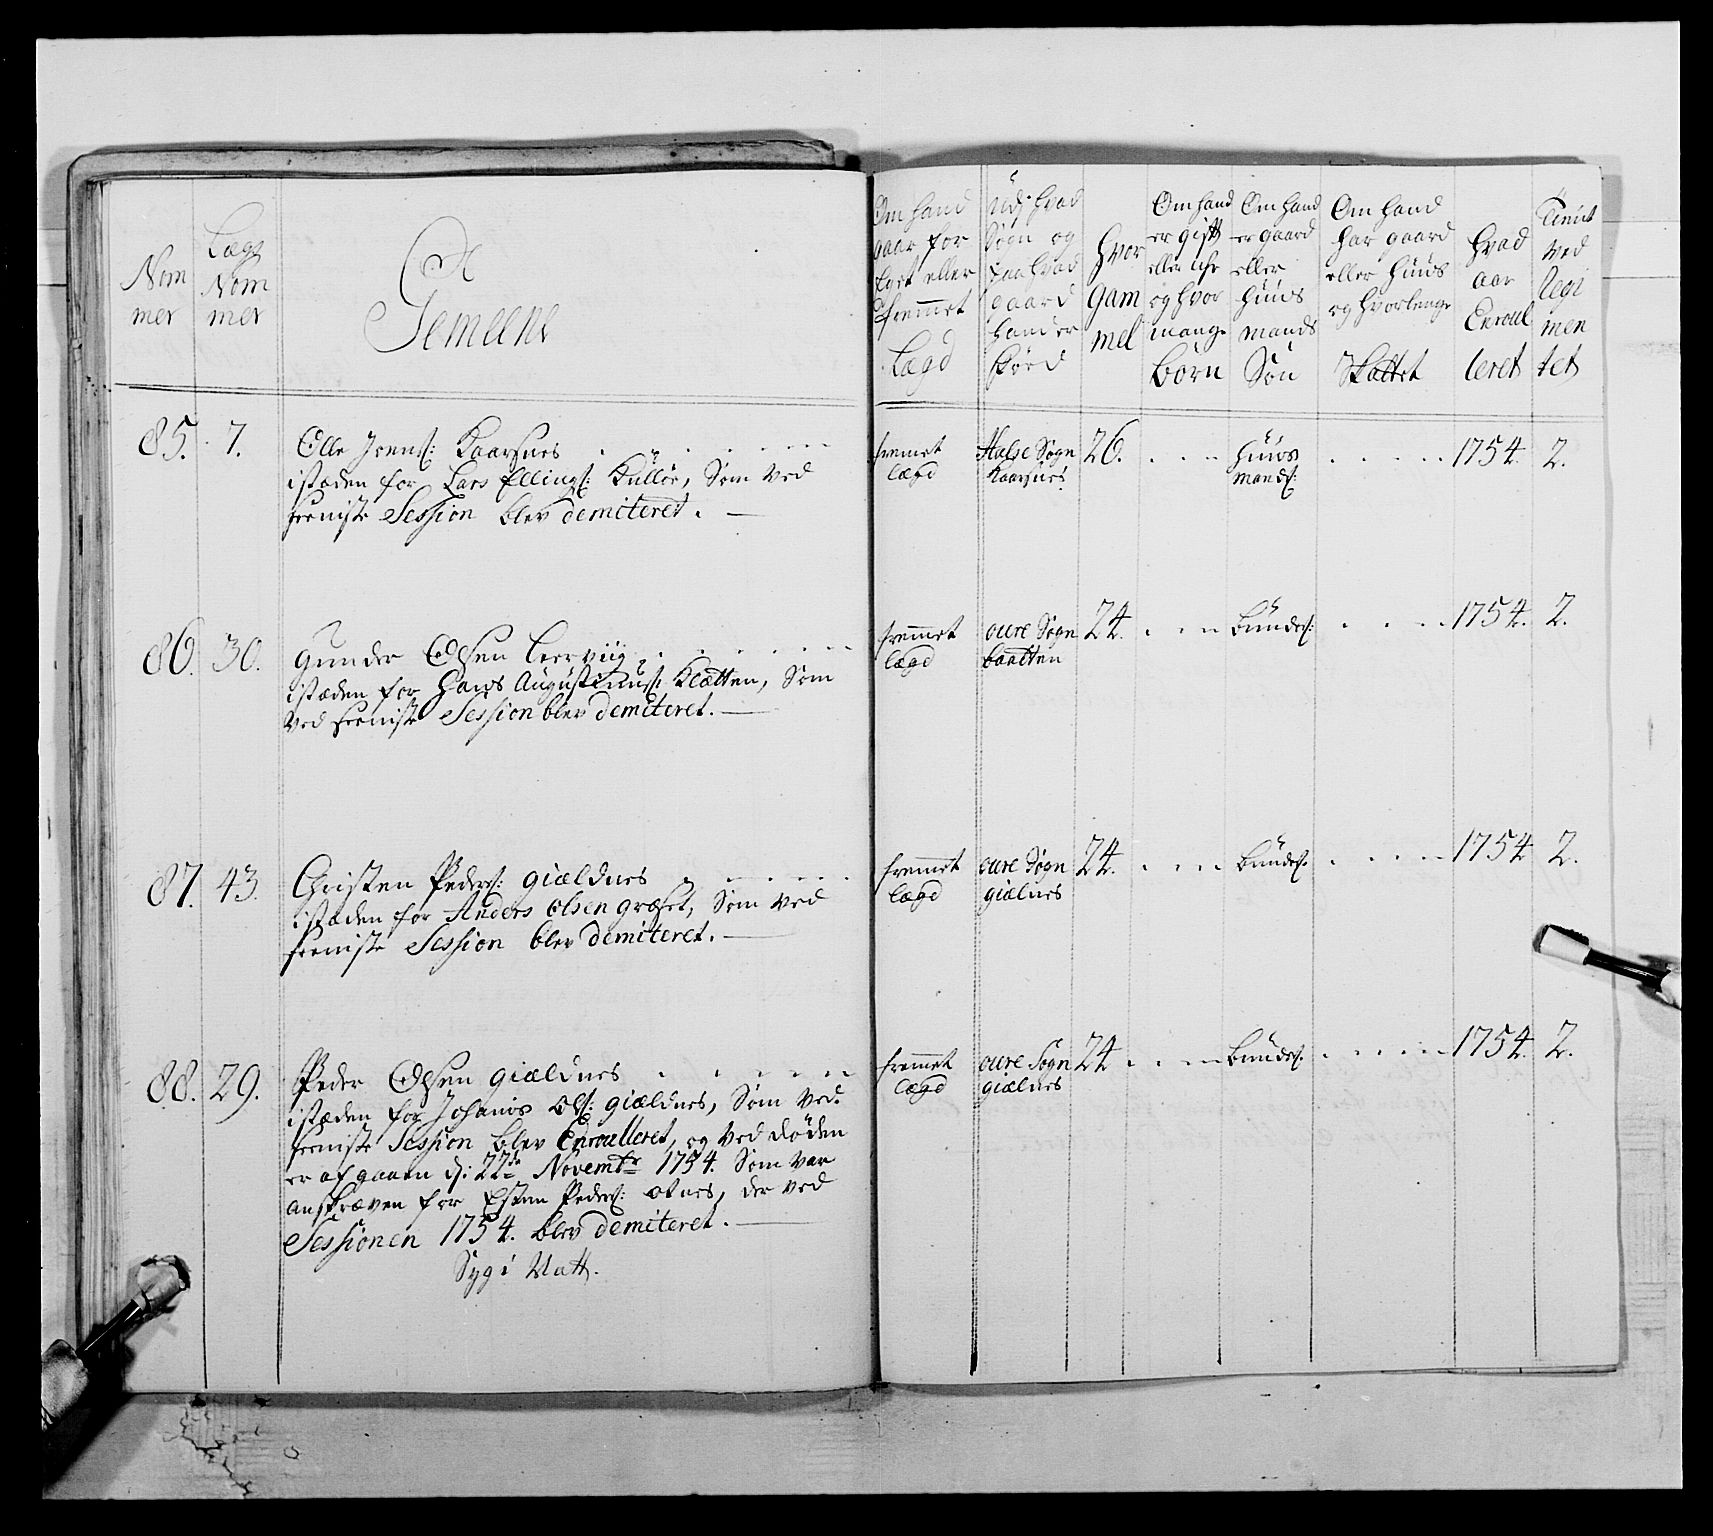 Nom
mer
Lægs
Nom
mer
Gemeene
Om hand
gaar for
Eget eller
fremmet
Lægd
Udj hvad
Sogn og
paa hvad
gaard
hand er
föed
Hvor
Gam
mel
Om hand
er gift
eller ey
og hvor
mange
Börn
Om hand
er gaard
eller
huus
mands
Sön
Om hand
har gaard
eller huus
og hvorlenge
Skattet
Hvad
aar
Enroul
leret
Tient
ved
Regi
men
tet
85. 7. Olle Joens: Kaarsnes
istæden for Lars Ellings: Kulløe, Som ved
seeniste Session blev demiteret.
fremet
lægd
Halse Sogn
Kaarsnes
26.
huus
mands:
1754. 2.
86. 30. Gunder Olsen Leerviig
istæden for Hans Augustinus: Klætten, Som
ved seeniste Session blev demiteret.
fremmet
lægd
oure Sogn
baatten
24. bundes: 1754. 2.
87. 43. Christen Peders: giældnes
istæden for Anders olsen græset, Som ved
seeniste Session blev demiteret.
fremmet
lægd
oure Sogn
giælnes
24. bundes. 1754 2.
88. 29. Peder Olsen giældnes
istæden for Johanis Ols: giældnes, Som ved
seeniste Session blev Enroulleret, og ved døden
er afgaaen d: 22de Novembr 1754. Som var
anskræven for Esten Peders: otnes, der ved
Sessionen 1754. blev demiteret.
Syg i Natt.
fremmet
lægd
oure Sogn
giælnes
24 bundes. 1754. 2.